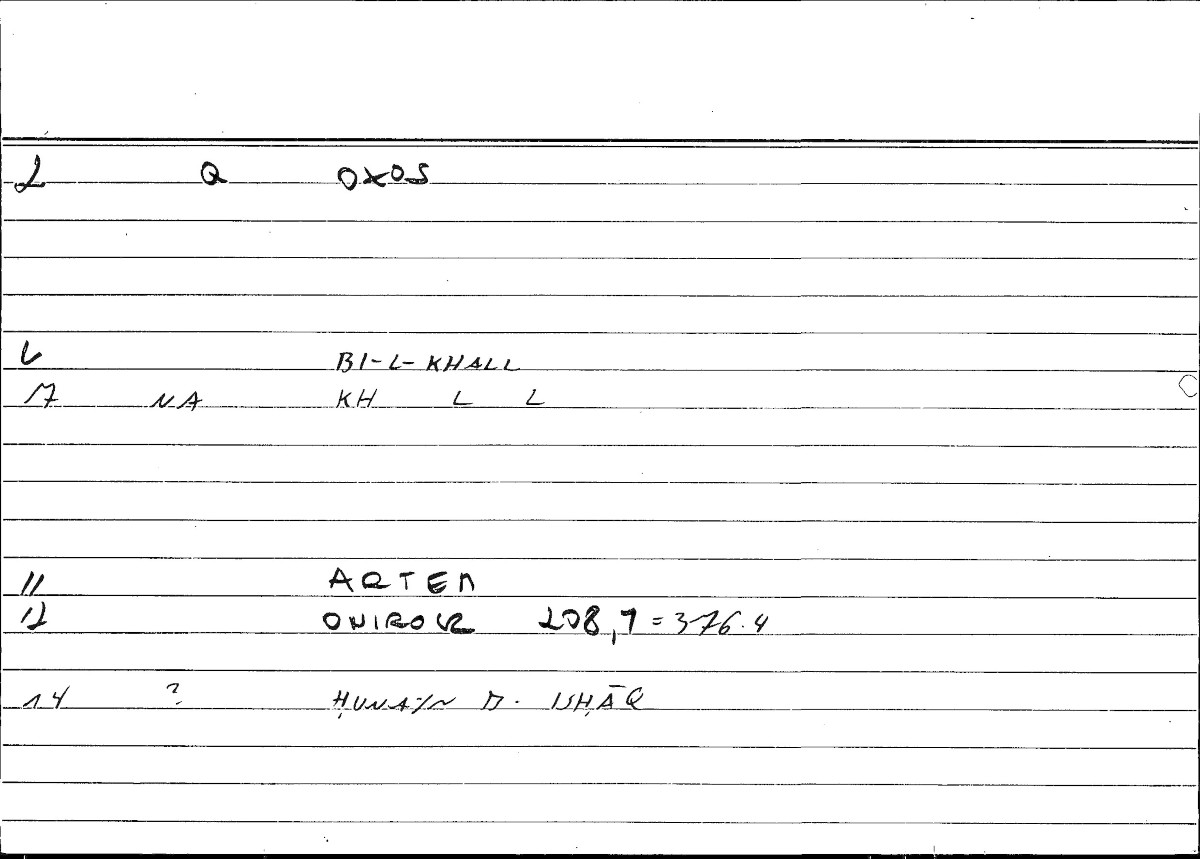 2 Q OXOS
6 BI-L-KHALL
7 NA KH L L
11 ARTEM
12 ONIROCR 208,7 = 376.4
14 ? ḤUNAYN B. ISḤĀQ